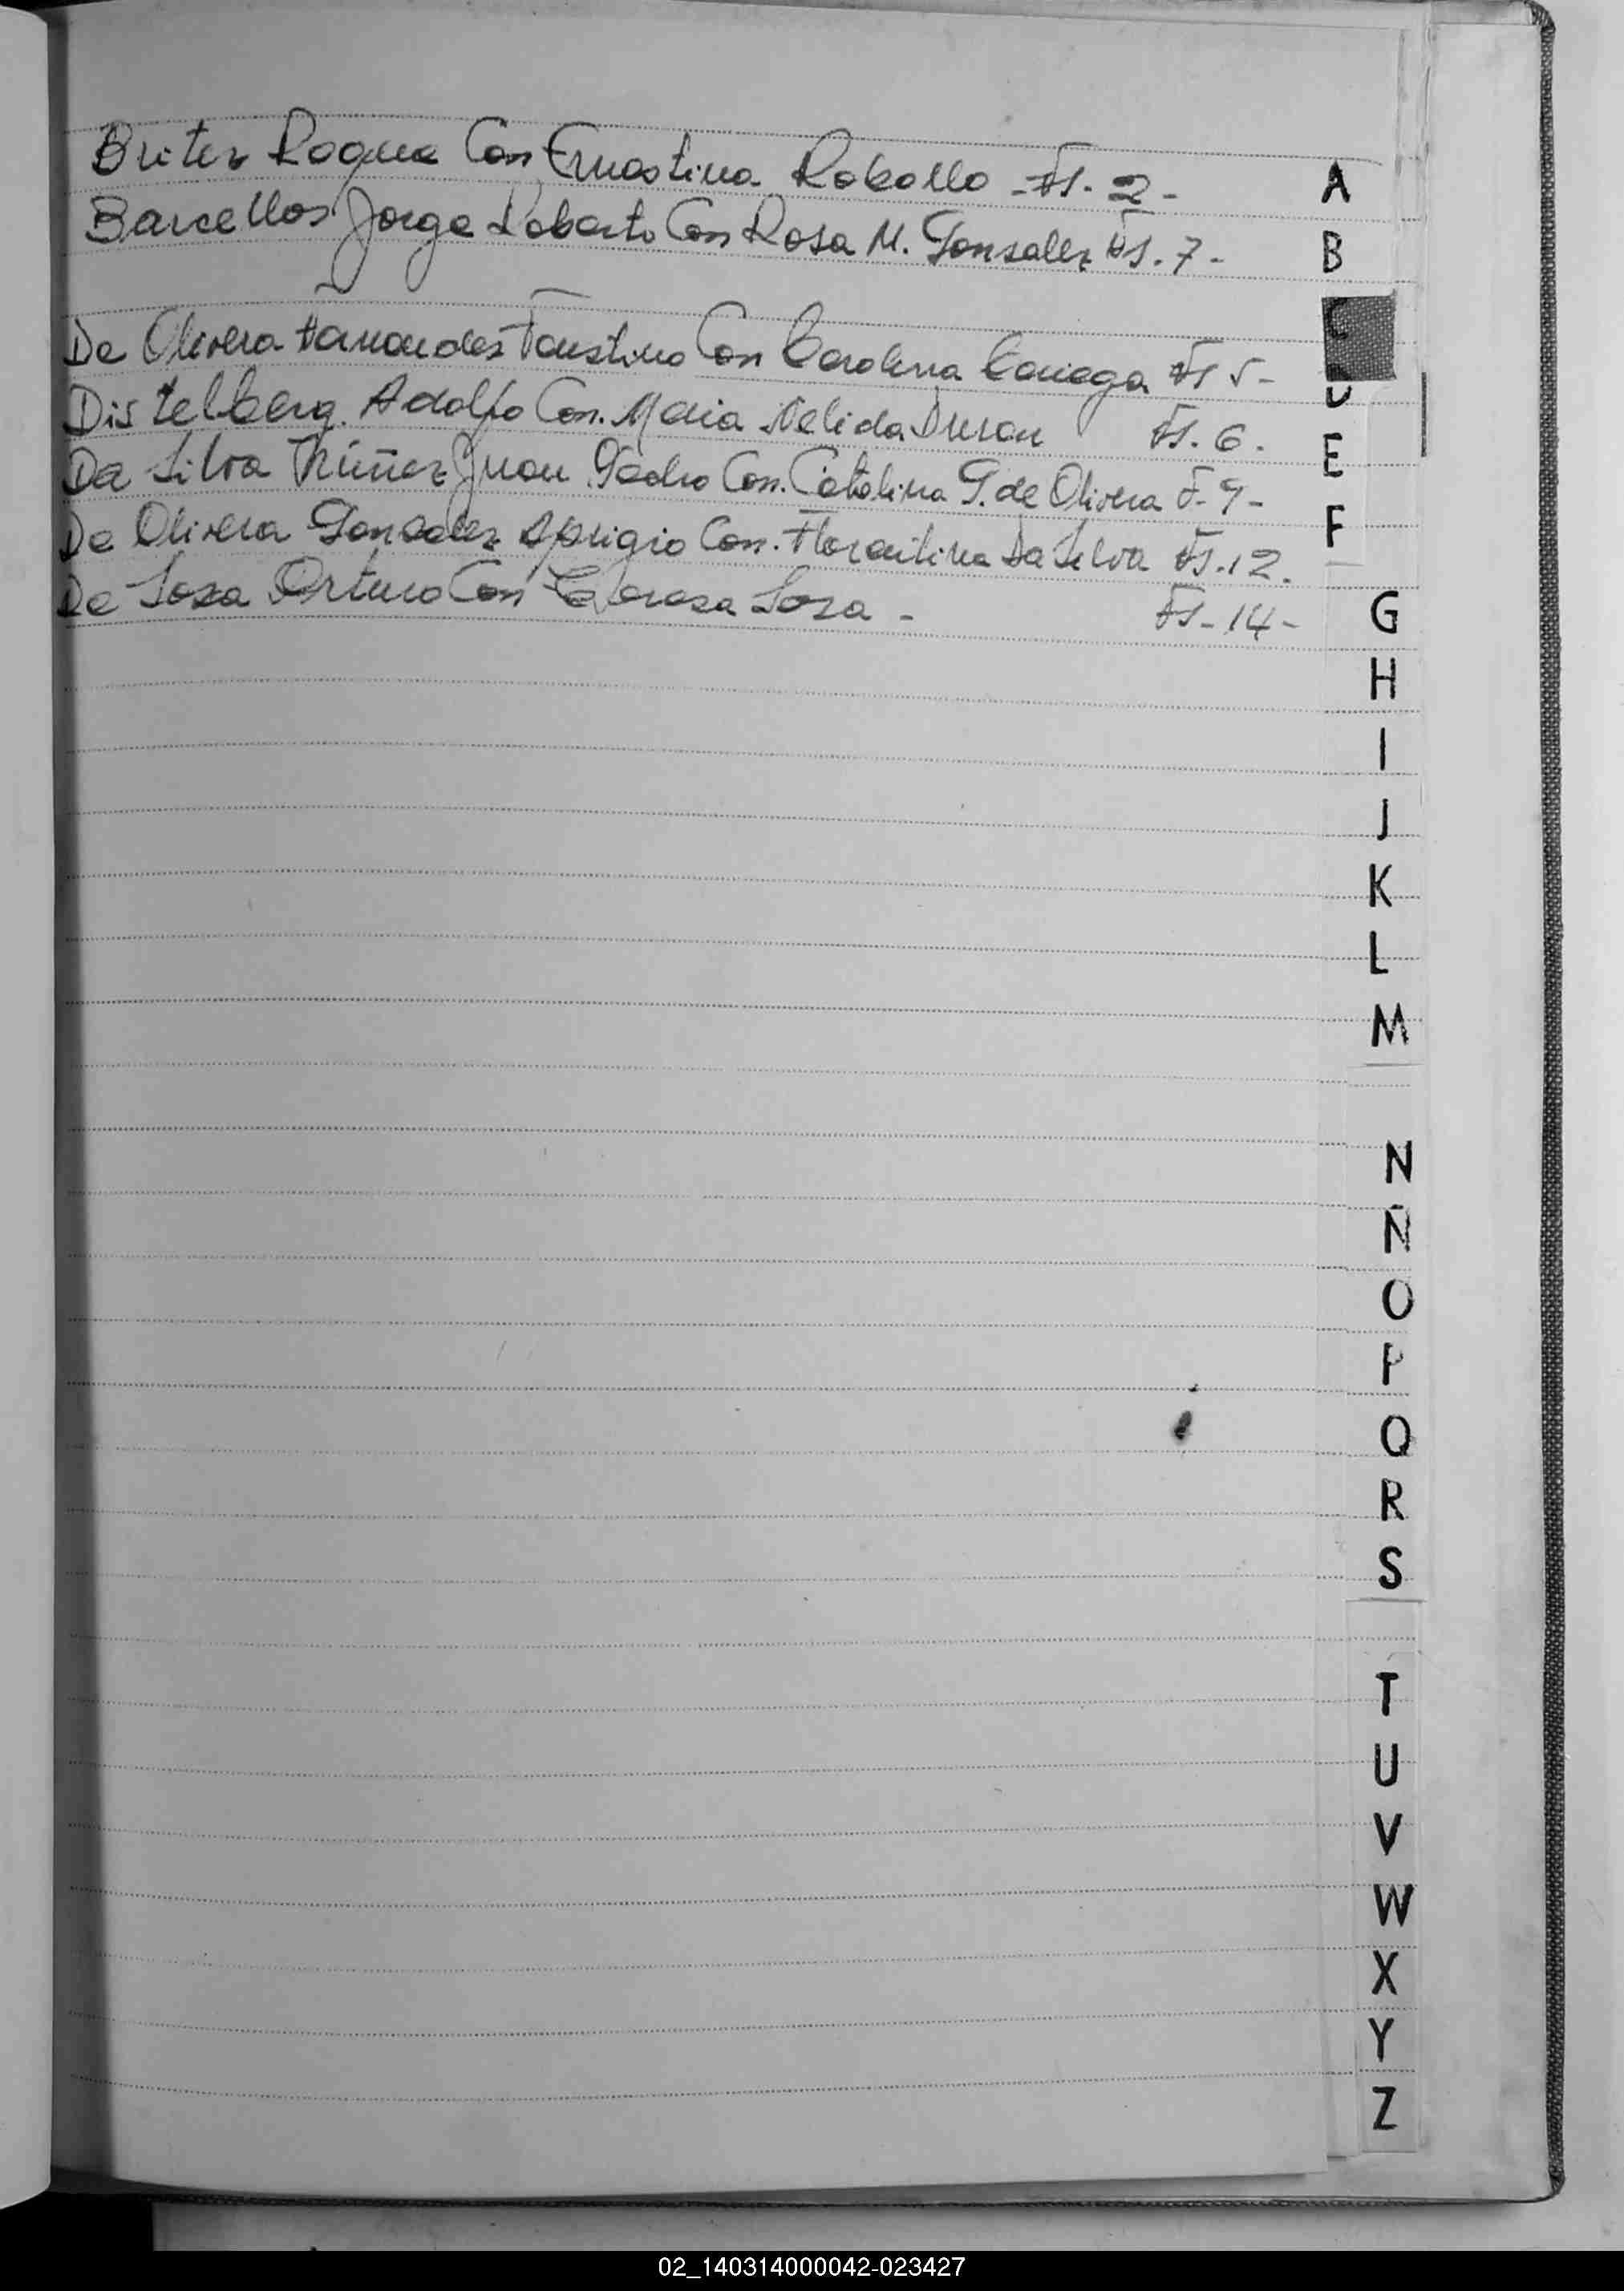 Brites Roque Con Ernestina Rebollo - Fs. 2 -
Barcellos Jorge Roberto Con Rosa M. Gonsalez Fs. 7 -
De Olivera Fernandes Faustino Con Carolina Fs 5 -
Distelberg. Adolfo Con. Maria Nelida Duran Fs. 6.
Da Silva Núñez Juan Pedro Con. Catalina G. de Olivera F. 9 -
De Olivera Gonsalez Aprigio Con. Florentina Da Silva Fs. 12.
De Sosa Arturo Con Sosa - Fs - 14 -
A
B
C
D
E
F
G
H
I
J
K
L
M
N
Ñ
O
P
Q
R
S
T
U
V
W
X
Y
Z
02_140314000042-023427